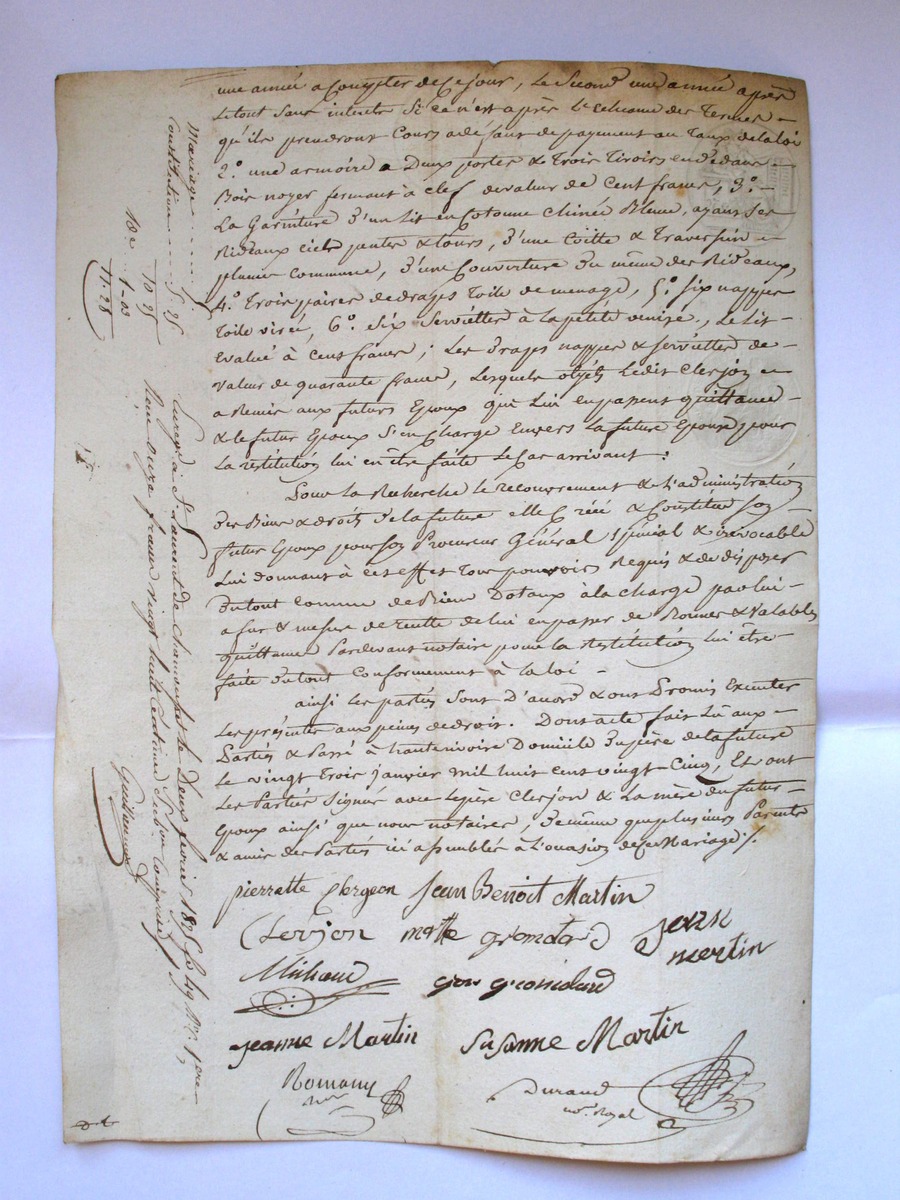 une année a Compter de Ce jour, le Second une année après
le tout Sans intérêts Si ce n'est après l'échéance des Termes
qu'ils prendront Cours a défaut de payement au Taux de la loi
2°. une armoire a Deux portes & Trois Tiroirs en dedans
Bois noyer fermant à clef de valeur de Cent francs, 3°.
La Garniture d'un lit en Cotonne Chinée Bleue, ayant Ses
Rideaux Ciel pentes & tours, d'une Coitte & Traversin
plume Commune, d'une Couverture du même des Rideaux,
4°. Trois paires de draps Toile de menage, 5°. Six nappes
Toile 6°. Six Serviettes à la petite venise, le lit
Evalué à Cent francs; Les draps nappes & Serviettes de
valeur de quarante francs, Lesquels objets ledit Clerjon
a Remis aux futurs Epoux qui lui en passent quittance
& le futur Epoux S'en Charge Envers La future Epouse pour
La restitution lui en être faite le Cas arrivant:
Pour la Recherche le recouvrement & l'administration
des Biens & droits de la future elle Créé & Constitue Son
futur Epoux pour Son Procureur Général Spécial & irrévocable
Lui donnant à cet effet Tous pouvoirs Requis & de disposer
du tout comme de Biens Dotaux à la charge par lui
a fur & mesure de recette de lui en passer de Bonnes & Valables
quittances Pardevant notaire pour la restitution lui être
faite du tout Conformement à la loi
ainsi les parties Sont D'accord & ont Promis Executer
Les présentes aux peines de droit. Dont acte fait Lu aux
Parties & Passé à hauterivoire Domicile du père de la future
Le vingt trois janvier mil huit cent vingt Cinq, Et ont
Les Parties Signé avec le père Clerjon & La mère du futur
Epoux ainsi que nous notaires, de même que plusieurs Parents
& amis des Parties ici assemblés à l'occasion de ce Mariage ./.
pierrette Clergeon Jean Benoit Martin
Clerjon jean
martin
Michaud
jeanne Martin Susanne Martin
Romany Durand
nre. Royal
Mariage
Constitution 5-25
10 25
10e 1-03
11-28
Enregé à St. Laurent de Chamousset le Deux fevrier 1825 fo 49
Reçu onze francs vingt huit Centimes Subvon Comprise
Guillaume